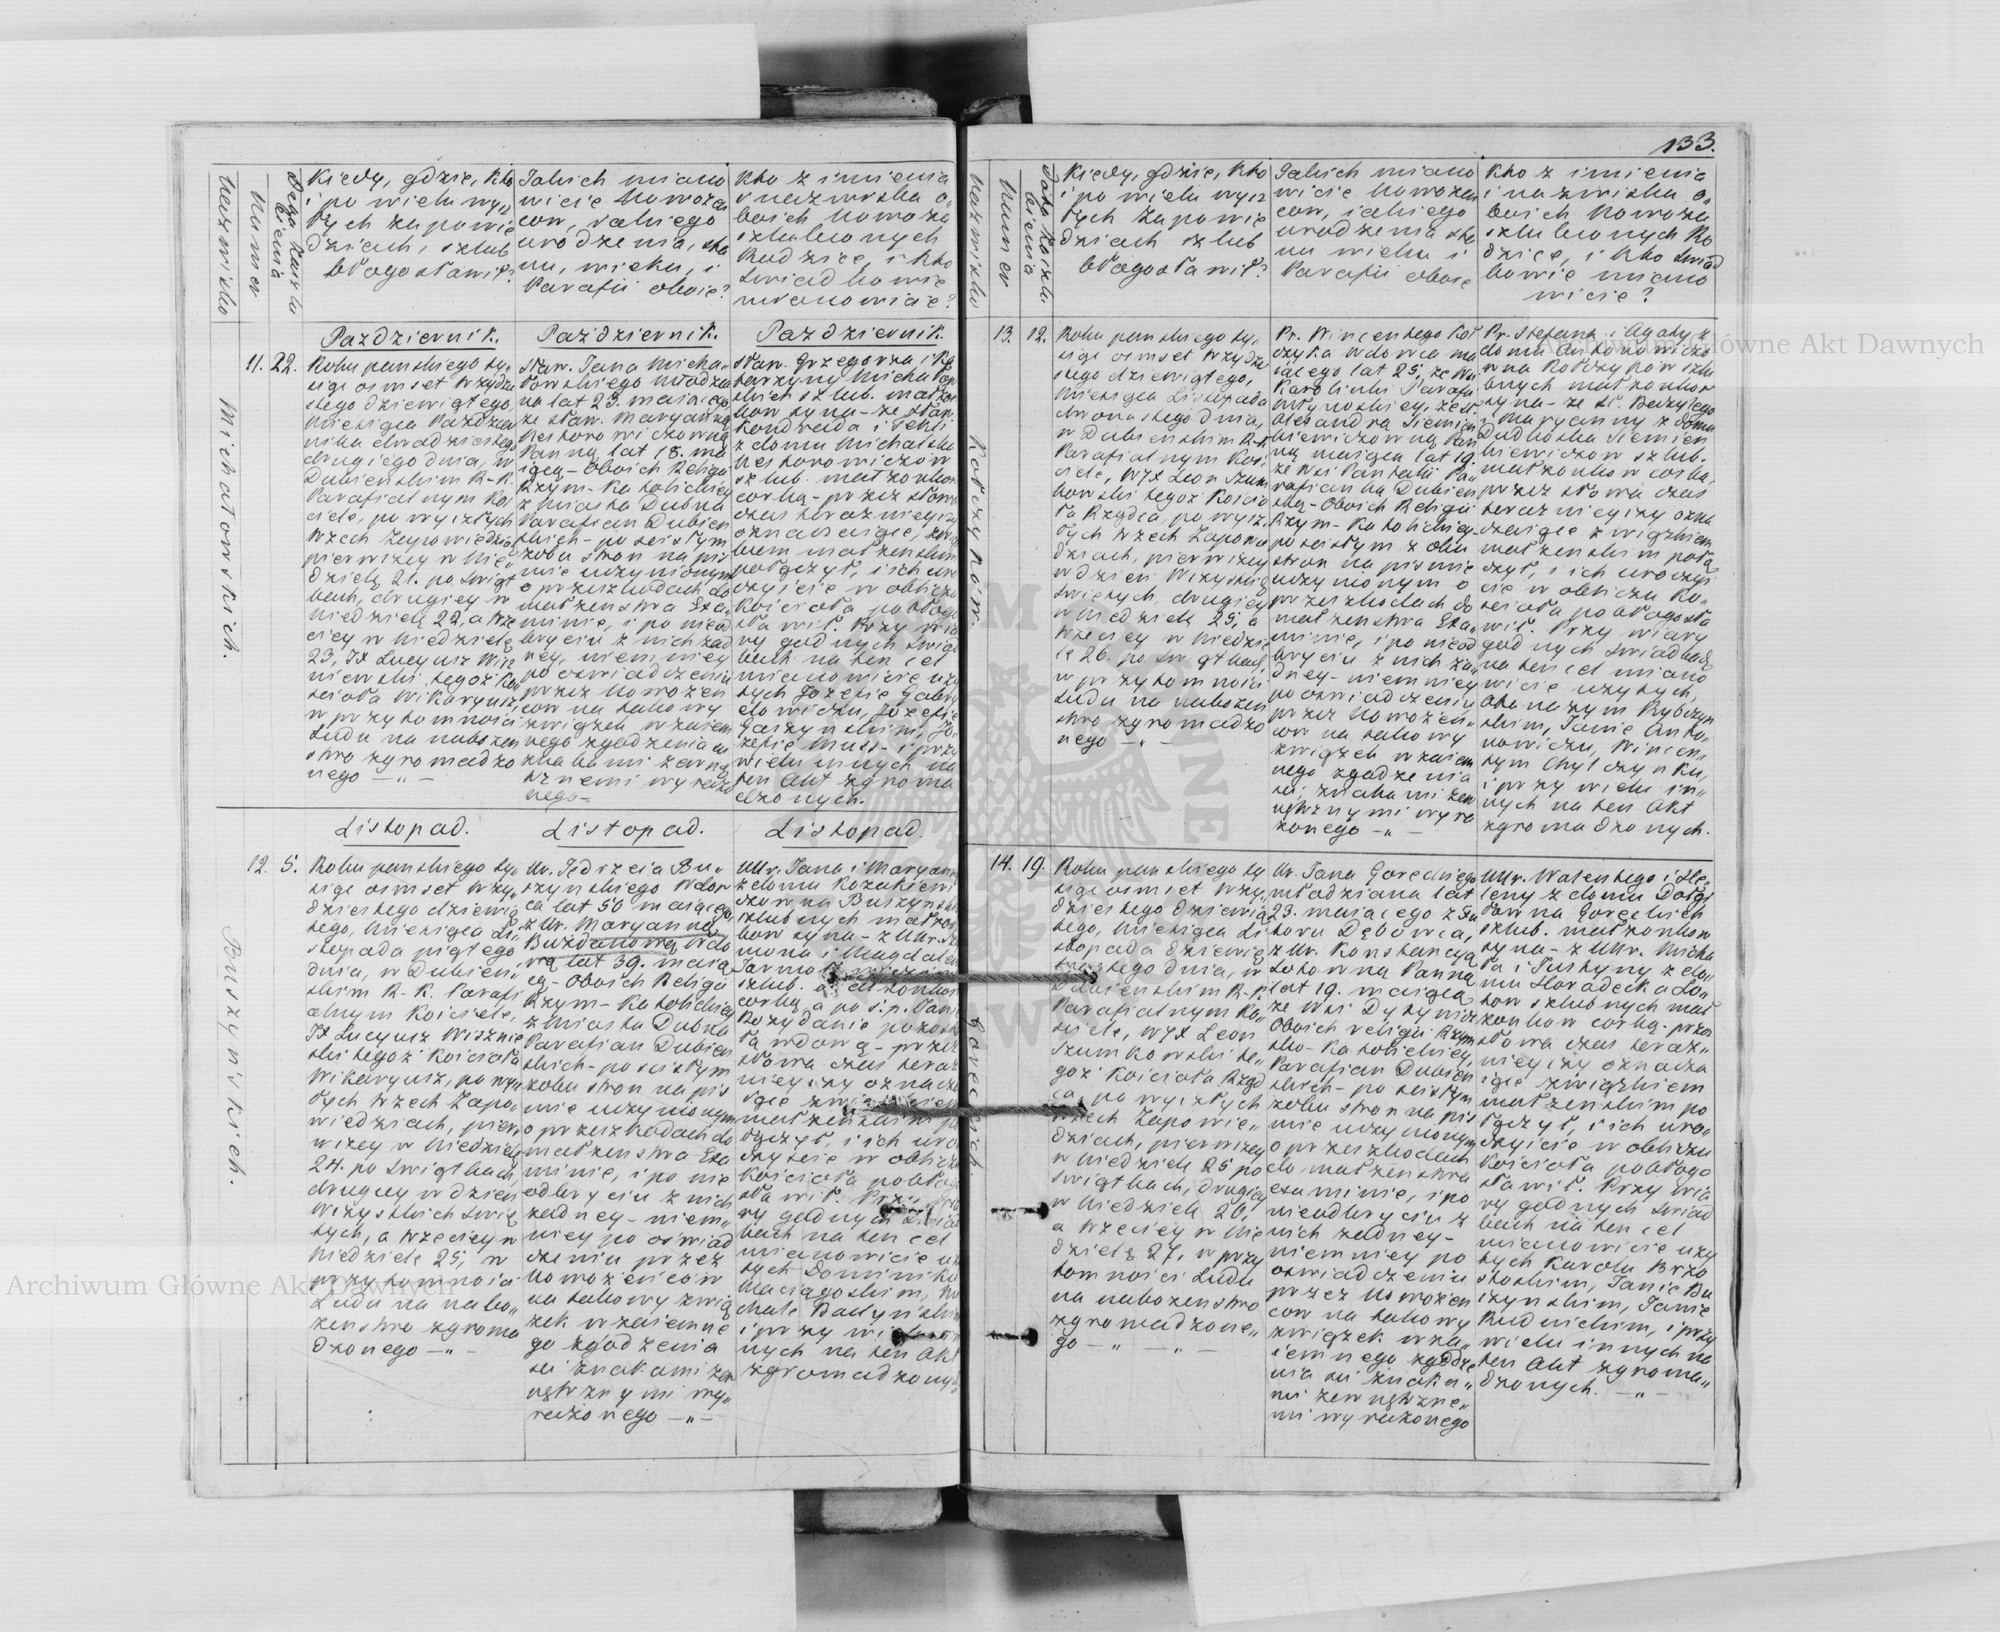 133.
Nazwisko
Numer
Data Kazła
bienia
Kiedy, gdzie, Kto
i po wielu wyj
tych zapowie
dziach, szlub
błogosławił?
Jakich miano
wicie Nowożeń
cow, jakiego
urodzenia, sta
nu, wieku, i
Parafii oboie?
Kto z imienia
i nazwiska o,
boich Nowoza
szlubionych
Rodzice, i Kto
Swiadkowie
mianowicie?
Pazdziernik.
Pazdziernik.
Pazdziernik.
11. 22.
Michałowskich.
Roku pańskiego ty,
siąc osmset trzydzie
stego dziewiątego
Miesiąca Pazdzier
nika dwudziestego
drugiego dnia, w
Dubienskim R-K.
Parafialnym Koś
ciele, po wyszłych
trzech Zapowiedziach
pierwszey w Nie,
dzielę 21. po Swiąt
kach, drugiey w
Niedzielę 22, a trze
ciey w Niedzielę
23, JX Lucyusz Wisz
niewski tegoż Ko,
scioła Wikaryusz,
w przytomności
Ludu na nabożen
stwo zgromadzo
nego — „ —
Sław. Jana Micha,
łowskiego młodzia
na lat 23. maiącego
ze sław. Maryanną
Nestorowiczowną
Panną lat 18. ma
iącą - Oboich Religii
Rzym-Katolickiey
z Miasta Dubna
Parafian Dubień
skich - po scisłym
z obu stron na pis
mie uczynionym
o przeszkodach do
małżenstwa Exa,
minie, i po nieod
kryciu z nich żad
ney, niemniey
po oswiadczeniu
przez Nowożeń
cow na takowy
związek wzaiem
nego zgodzenia się
znakami zewnę
trznemi wyrażo
nego -
Sław. Grzegorza i Ka
tarzyny Michałow
skich szlub. małżon
kow syna - ze sław.
Kondrada i Tekli
z domu Michalska
Nestorowiczow
szlub. małżonkow
corką - przez słowa
czas teraznieyszy
oznaczaiące, związ
kiem małżenskim
połączył, i ich uro
czyście w obliczu
Kościoła pobłogo
sławił. Przy wia
ry godnych Swiad
kach na ten cel
mianowicie uży
tych Jozefie Gabry
elowiczu, Jozefie
Gaszynskim, Jo,
zefie Muss- i przy
wielu innych na
ten Akt zgroma
dzonych.
Listopad.
Listopad.
Listopad.
12. 5.
Buszyńskich.
Roku pańskiego ty,
siąc osmset trzy,
dziestego dziewią
tego, Miesiąca Li,
stopada piątego
dnia, w Dubień,
skim R-K. Parafi
alnym Kościele,
JX Lucyusz Wisznie
ski tegoż Kościoła
Wikaryusz, po wysz
łych trzech Zapo,
wiedziach, pierw
wszey w Niedzielę
24. po Swiątkach,
drugiey w dzień
Wszystkich Swię
tych, a trzeciey w
Niedzielę 25, w
przytomności
Ludu na nabo,
żenstwo zgroma
dzonego — „ —
Ur. Jędrzeia Bu,
szynskiego Wdow
ca lat 50 maiącego,
z Ur. Maryanną
Buzdanową Wdo
wą lat 39. maią
cą - Oboich Religii
Rzym-Katolickiey
z Miasta Dubna
Parafian Dubień
skich - po scisłym
z obu stron na pis
mie uczynionym
o przeszkodach do
małżenstwa Exa
minie, i po nie
odkryciu z nich
żadney - niem,
niey po oswiad
czeniu przez
Nowożeńcow
na takowy zwią
zek wzaiemne
go zgodzenia
się znakami zew
nętrznymi wy,
rażonego — „ —
Ukr. Jana i Maryanny
z domu Kozakiewi
czowna Buszynskich
szlubnych małżon
kow syna - z Ukr. Szy
mona i Magdaleny
szlub. małżonkow
corką, a po ś.p. Janie
Bozydanie pozosta
łą wdową - przez
słowa czas teraz
nieyszy oznacza
iące związkiem
małżenskim po
łączył, i ich uro
czyscie w obliczu
Kościoła pobłogo
sławił. Przy wia
ry godnych Swiad
kach na ten cel
mianowicie uży
tych Dominiku
Maciągoskim, Mi
chale Badynskim
i przy wielu in
nych na ten Akt
zgromadzonych
Nazwisko
Numer
Data Kazła
bienia
Kiedy, gdzie, Kto
i po wielu wysz
łych Zapowie
dziach szlub
błogosławił?
Jakich miano
wicie Nowożeń
cow, iakiego
urodzenia sta
nu wieku i
Parafii oboie
Kto z imienia
i nazwiska o,
boich Nowoza
szlubionych Ro
dzice, i Kto Swiad
kowie miano
wicie?
13. 12.
Kołczyków.
Roku pańskiego ty,
siąc osmset trzydzie
stego dziewiątego,
Miesiąca Listopada
dwonastego dnia,
w Dubienskim R-K.
Parafialnym Koś,
ciele, WJX Leon Szum
kowski tegoż Kościo
ła Rządca, po wysz,
łych trzech Zapowie
dziach, pierwszey
w dzień Wszystkich
Swiętych, drugiey
w Niedzielę 25, a
trzeciey w Niedzie
lę 26. po Swiątkach,
w przytomności
Ludu na nabożeń
stwo zgromadzo
nego — „ —
Pr. Wincentego Koł
czyka Wdowca ma
iącego lat 25, ze Wsi
Karolinki Parafii
Młynoskiey, ze St.
Alexandrą Siemień
kiewiczowną Pan
ną maiącą lat 19.
ze Wsi Pantalii Pa
rafianką Dubień
ską - Oboich Religii
Rzym-Katolickiey
po scisłym z obu
stron na pismie
uczynionym o
przeszkodach do
małżenstwa Exa,
minie, i po nieod
kryciu z nich ża,
dney - niemniey
po oswiadczeniu
przez Nowożeń,
cow na takowy
związek wzaiem
nego zgodzenia
się, znakami zew
nętrznymi wyra
żonego — „ —
Pr. Stefana i Agaty z
domu Antonowiczo
wna Kołczykow szlu
bnych małżonkow
syna - ze St. Bazylego
i Maryanny z domu
Dudkoska Siemień
kiewiczow szlub.
małżonkow corką,
przez słowa czas
teraznieyszy ozna
czaiące związkiem
małżenskim połą
czył, i ich uroczyś
cie w obliczu Ko,
scioła pobłogosła
wił. Przy wiary
godnych Swiadkach
na ten cel miano
wicie użytych,
Atanazym Rybczyn
skim, Janie Anto,
nowiczu, Wincen
tym Chylczynku,
i przy wielu in,
nych na ten Akt
zgromadzonych.
14. 19.
Goreckich.
Roku pańskiego ty
siąc osmset trzy,
dziestego dziewią
tego, Miesiąca Li
stopada dziewię
tnastego dnia, w
Dubienskim R-K.
Parafialnym Ko,
sciele, WJX Leon
Szumkowski te,
goż Kościoła Rząd
ca, po wyszłych
trzech Zapowie,
dziach, pierwszey
w Niedzielę 25 po
Swiątkach, drugiey
w Niedzielę 26,
a trzeciey w Nie
dzielę 27, w przy
tomności Ludu
na nabożenstwo
zgromadzone,
go — „ — „ —
Ur. Jana Goreckiego
młodziana lat
23. maiącego z Fu
tora Dębowca,
z Ur. Konstancyą
Lotowna Panną
lat 19. maiącą
ze Wsi Dytynicz
Oboich religii Rzym
sko-Katolickiey,
Parafian Dubień
skich - po scisłym
z obu stron na pis
mie uczynionym
o przeszkodach
do małżenstwa
examinie, i po
nieodkryciu z
nich żadney -
niemniey po
oswiadczeniu
przez Nowożeń
cow na takowy
związek wza,
iemnego zgodze
nia się znaka,
mi zewnętrzne,
mi wyrażonego
Ukr. Walentego i He,
leny z domu Dołgi
łowna Goreckich
szlub. małżonkow
syna - z Ukr. Micha
ła i Justyny z do,
mu Horadecka Lo,
tow szlubnych mał
żonkow corką - przez
słowa czas teraz,
nieyszy oznacza
iące związkiem
małżenskim po
łączył, i ich uro,
czyście w obliczu
Kościoła pobłogo
sławił. Przy wia
ry godnych Swiad
kach na ten cel
mianowicie uży
tych Karolu Brzo
stoskim, Janie Bu
szynskim, Janie
Rudnickim, i przy
wielu innych na
ten Akt zgroma,
dzonych. — „ —
Archiwum Główne Akt Dawnych
Archiwum Główne Akt Dawnych